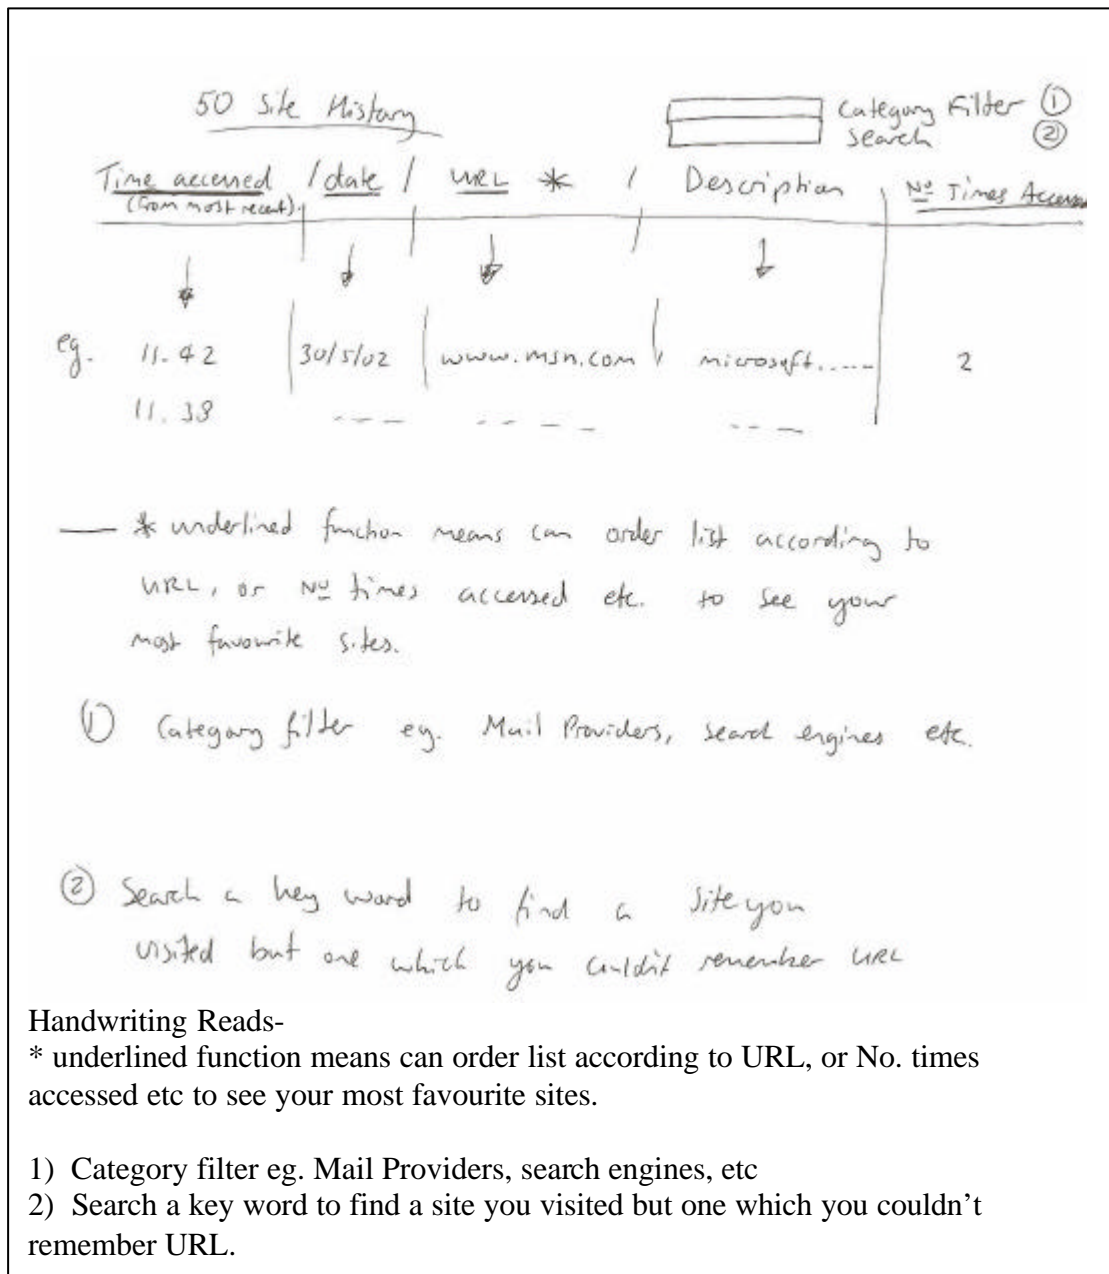 50 Site History
Category Filter ①
Search ②
Time accessed / date / URL * / Description No Times Access
(from most recent)
eg. 11.42 30/5/02 www.msn.com microsoft.....
2
11.38 ---- ----- ----
* underlined function means can order list according to
URL, or No times accessed etc. to see your
most favourite sites.
① Category filter eg. Mail Providers, search engines etc.
② Search a key word to find a site you
visited but one which you couldn't remember URL
Handwriting Reads-
* underlined function means can order list according to URL, or No. times
accessed etc to see your most favourite sites.
1) Category filter eg. Mail Providers, search engines, etc
2) Search a key word to find a site you visited but one which you couldn't
remember URL.